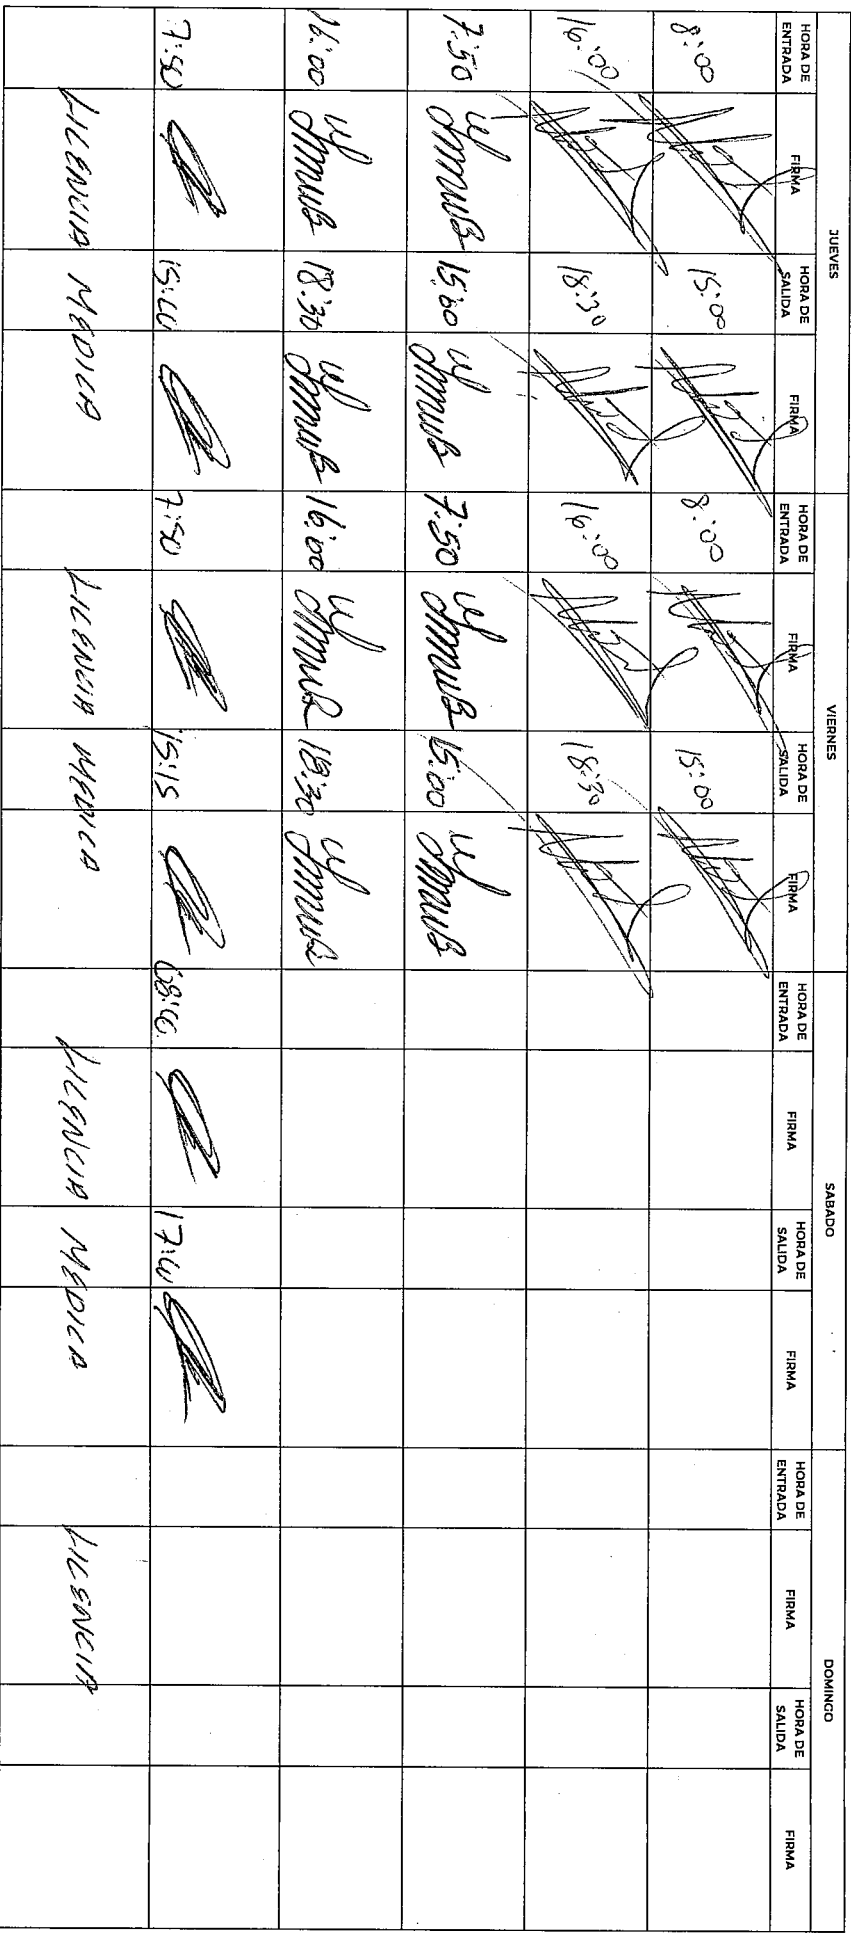 JUEVES VIERNES SABADO DOMINGO
HORA DE ENTRADA FIRMA HORA DE SALIDA FIRMA HORA DE ENTRADA FIRMA HORA DE SALIDA FIRMA HORA DE ENTRADA FIRMA HORA DE SALIDA FIRMA HORA DE ENTRADA FIRMA HORA DE SALIDA FIRMA
8:00 15:00 8:00 15:00
16:00 18:30 16:00 18:30
7:50 15:00 7:50 15:00
16:00 18:30 16:00 18:30
7:50 15:00 7:50 15:15 08:00. 17:00
LICENCIA MEDICA LICENCIA MEDICA LICENCIA MEDICA LICENCIA